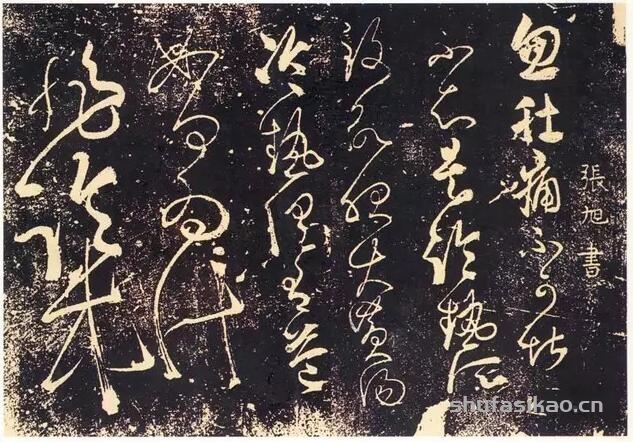 張旭書
忽肚痛不可堪
不知是冷熱所
致欲服大黃湯
冷熱俱有益
如何為計
非臨床
shufasikao.cn